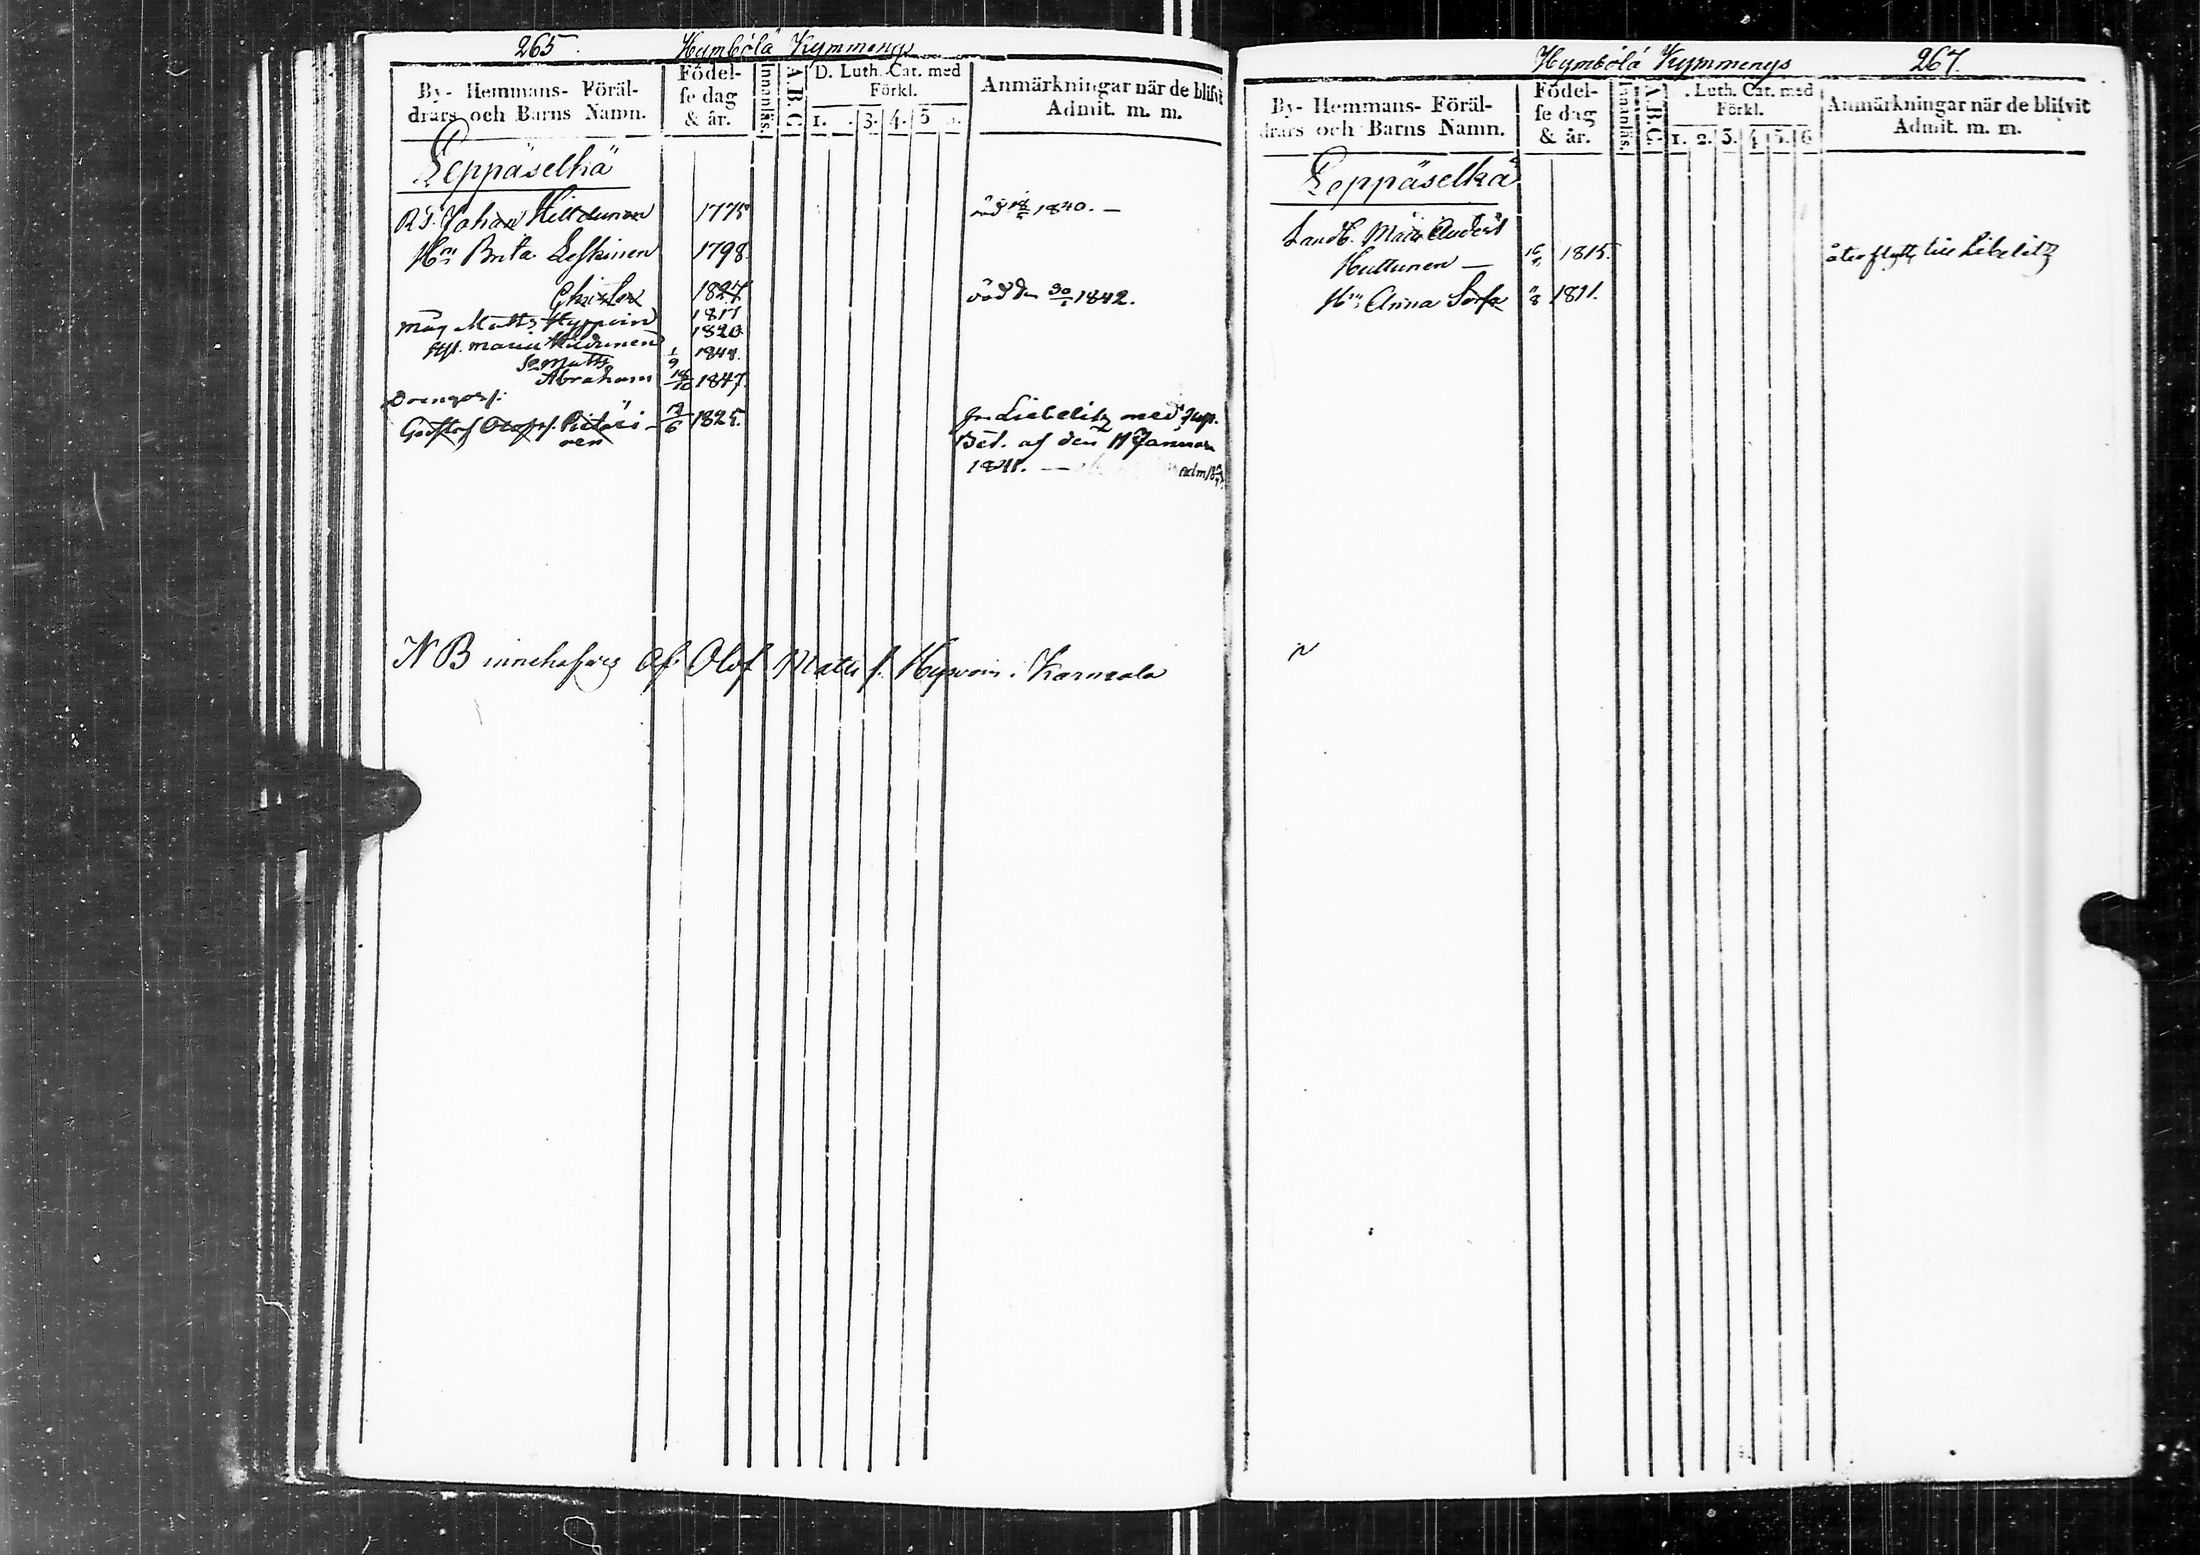 265. Hymbölä Kymmenys
By- Hemmans- Föräl-
drars och Barns Namn.
Födel-
se dag
& år.
Innanläs.
A.B.C
D. Luth. Cat. med
Förkl.
1. 3. 4. 5
Anmärkningar när de blifvit
Admit. m. m.
Leppäselkä
Johan Hilldunen 1775 död 1840. —
Hru Brita Leskinen 1798.
Christer 1827 död den 30/1 1842.
Måg Matts Hyppoin 1817
Maria Hildunen 1820
So Matts 1/9 184
Abraham 18/10 1847.
Drengarf:
Gustaf Olofsf. 6 1825. fr Liebelitz med
Bet. af den 11 Januari
1841. —
NB innehafves af Olof Matts f. Hyvoin i Karmala
Hymbölä Kymmenys 267.
By- Hemmans- Föräl-
drars och Barns Namn.
Födel-
se dag
& år.
Innanläs.
A.B.C.
. Luth. Cat. med
Förkl.
1. 2. 3. 4 5. 6
Anmärkningar när de blifvit
Admit. m. m.
Leppäselkä
Landb. Matts Andersf
Huttunen — 16 1815. återflytt till Libelitz
Hru Anna Sorsa 8 1811.